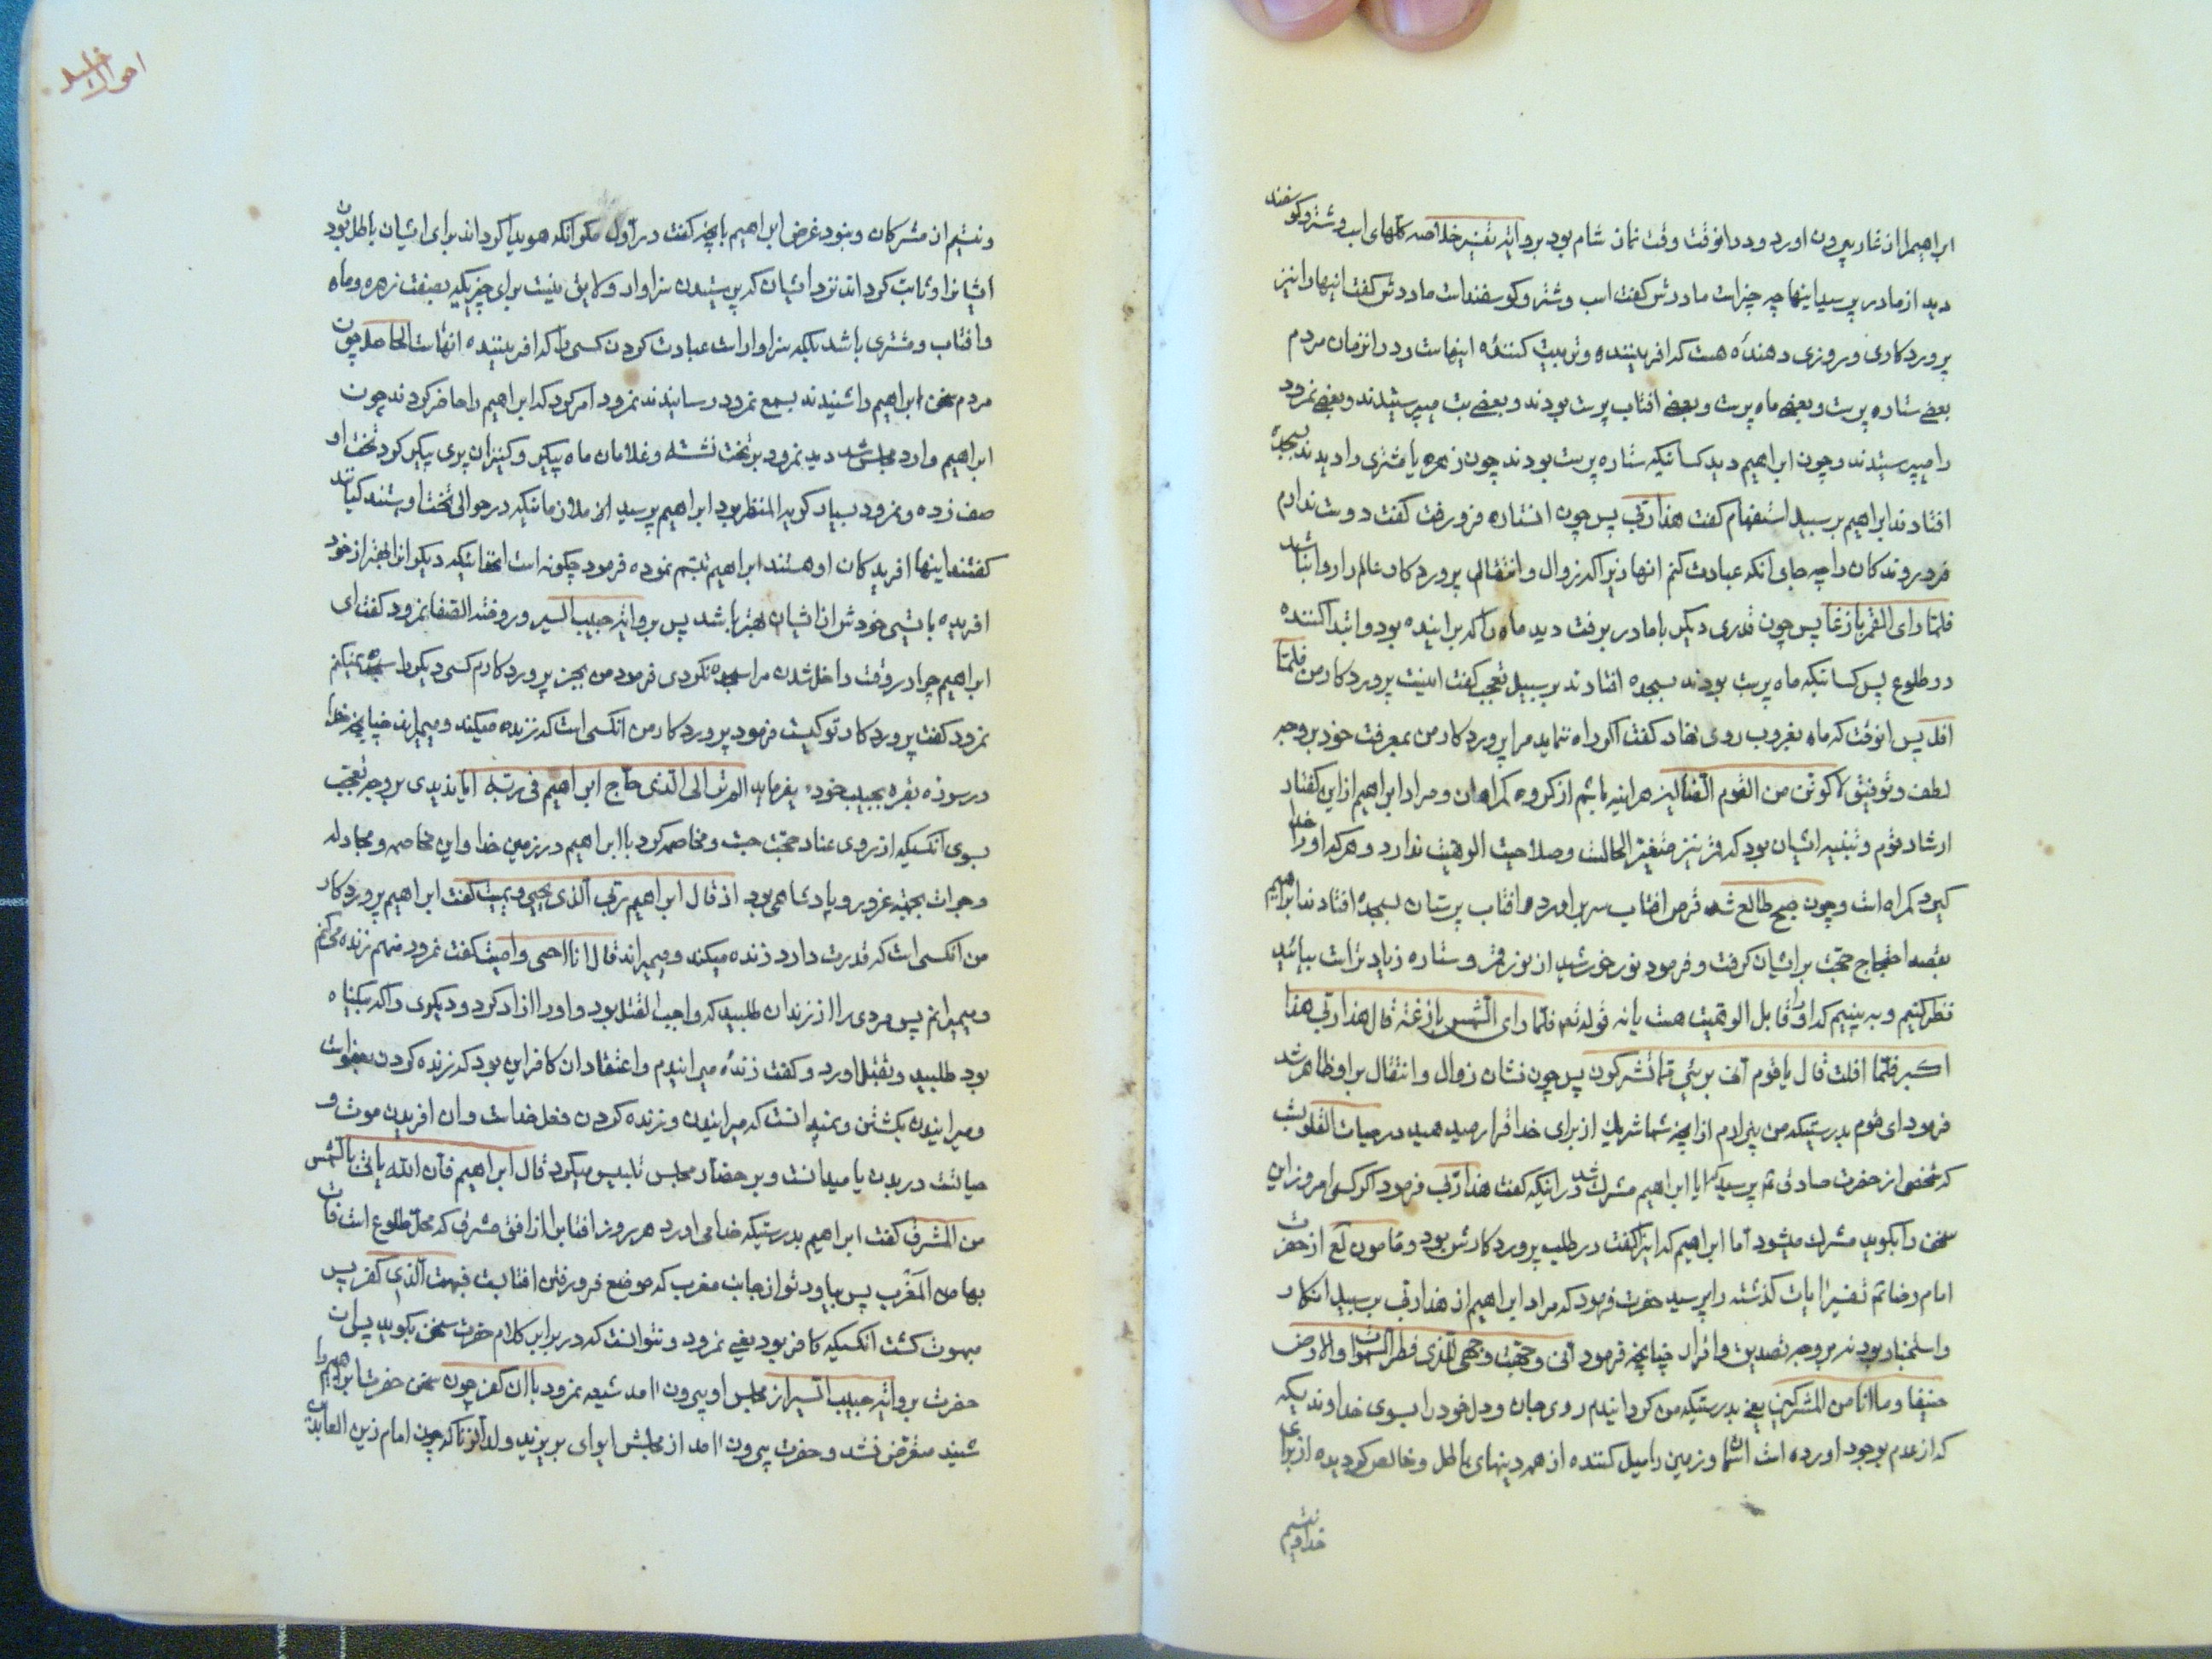 ابراهیم را از غار بیرون اورد و در انوقت وقت نماز شام بود بروایة تفسیر خلاصه کلهای اسب و شتر و کوسفند
دید از مادر پرسید اینها چه چیز است مادرش کفت اسب و شتر و کوسفند است مادرش کفت اینها را نیز
پروردکاری و روزی دهندۀ هست که افریننده و تربیت کنندۀ اینهاست و در انزمان مردم
بعضے ستاره پرست و بعضے ماه پرست و بعضے افتاب پرست بودند و بعضے بت میپرستیدند و بعضے نمرود
را میپرستیدند و چون ابراهیم دید کسانیکه ستاره پرست بودند چون زهره یا مشتری را دیدند بسجده
افتادند ابراهیم بر سبیل استفهام کفت هذا ربّی پس چون انستاره فرو رفت کفت دوست ندارم
فرو روندکان را چه جای انکه عبادت کنم انها را زیرا که زوال و انتقال پروردکار عالم را روا نباشد
فلمّا رای القمر بازغا پس چون قدری دیکر با مادر برفت دید ماه را که براینده بود و ابتدا کننده
در طلوع پس کسانیکه ماه پرست بودند بسجده افتادند بر سبیل تعجّب کفت اینست پروردکار من فلمّا
افل پس انوقت که ماه بغروب روی نهاد کفت اکر راه ننماید مرا پروردکار من بمعرفت خود بر وجه
لطف و توفیق لاکونّن من القوم الضّالین هراینه باشم از کروه کمراهان و مراد ابراهیم از این کفتار
ارشاد قوم و تنبیه ایشان بود که قمر نیز متغیّر الحالست و صلاحیت الوهیت ندارد و هر که او را خدا
کیرد کمراه است و چون صبح طالع شد قرص افتاب سر براورد و افتاب پرستان بسجده افتادند ابراهیم
بقصد احتجاج حجّت بر ایشان کرفت و فرمود نور خورشید از نور قمر و ستاره زیاد تراست بیائید
نظر کنیم و به بینیم که او قابل الوهیّت هست یا نه قوله تعم فلمّا رای الشّمس بازغة قال هذا ربّی هذا
اکبر فلمّا افلت قال یا قوم انّی بریٔ ممّا تشرکون پس چون نشان زوال و انتقال بر او ظاهر شد
فرمود ای قوم بدرستیکه من بیزارم از انچه شما شریک از برای خدا قرار میدهید در حیات القلوبست
که شخصی از حضرت صادق ۴ پرسید که ایا ابراهیم مشرک شد در انیکه کفت هذا ربّی فرمود اکر کسی امروز این
سخن را بکوید مشرک میشود امّا ابراهیم که اینرا کفت در طلب پروردکارش بود و مامون لع از حضرت
امام رضا ۴ تفسیر ایات کذشته را پرسید حضرت فرمود که مراد ابراهیم از هذا ربّی بر سبیل انکار
و استخبار بود نه بر وجه تصدیق و اقرار چنانچه فرمود انّی وجّهت وجهی للذی فطر السّموات والارض
حنیفا وما انا من المشرکین یعنے بدرستیکه من کردانیدم روی جان و دل خود را بسوی خداوندیکه
که از عدم بوجود اورده است اسمان و زمین را میل کننده از همه دینهای باطل و خالص کردیده از برای
نیستم
احوال خلیل
و نیستم از مشرکان و نبود غرض ابراهیم بانچه کفت در اول مکر انکه هویدا کرداند برای ایشان باطل بودن
ایشانرا و ثابت کرداند نزد ایشان که پرستیدن سزاوار و لایق نیست برای چیزیکه بصفت زهره و ماه
و افتاب و مشتری باشد بلکه سزاوار است عبادت کردن کسی را که افریننده انهاست الحاصل چون
مردم سخن ابراهیم را شنیدند بسمع نمرود رسانیدند نمرود امر کرد که ابراهیم را حاضر کردند چون
ابراهیم وارد مجلس شد دید نمرود بر تخت نشسته و غلامان ماه پیکر و کنیزان پری پیکر کرد تخت او
صف زده و نمرود بسیار کریه المنظر بود ابراهیم پرسید از ملازمانیکه در حوالی تخت اویستند کیانند
کفتند اینها افریدکان او هستند ابراهیم تبسّم نموده فرمود چکونه است انخدائیکه دیکرانرا بهتر از خود
افریده بایستی خودش از ایشان بهتر باشد پس بروایة حبیب السیر و روضة الصّفا نمرود کفت ای
ابراهیم چرا در وقت داخل شدن مرا سجده نکردی فرمود من بجز پروردکارم کسی دیکر را سجده نمیکنم
نمرود کفت پروردکار تو کیست فرمود پروردکار من انکسی است که زنده میکند و میمیراند چنانچه خدا
در سوره بقره بحبیب خود میفرماید الم تر الی الّذی حاجّ ابراهیم فی ربّه ایا ندیدی بر وجه تعجّب
بسوی انکسیکه از روی عناد حجّت جست و مخاصمه کرد با ابراهیم در زمین خدا و این مخاصمه و مجادله
و جرات بجهة غرور و پادشاهی بود اذ قال ابراهیم ربّی الّذی یحیی و یمیت کفت ابراهیم پروردکار
من انکسی است که قدرت دارد زنده میکند و میمیراند قال انا احیی و امیت کفت نمرود منهم زنده میکنم
و میمیرانم پس مردی را از زندان طلبید که واجب القتل بود و او را ازاد کرد و دیکری را که بیکناه
بود طلبید و بقتل اورد و کفت زنده میرانیدم و اعتقاد ان کافر این بود که زنده کردن
و میرانیدن بکشتن و نمیدانست که میرانیدن و زنده کردن فعل خداست و ان افریدن موت و
حیاتست در بدن یا میدانست و بر حضّار مجلس تلبیس میکرد قال ابراهیم فانّ الله یاتی بالشّمس
من المشرق کفت ابراهیم بدرستیکه خدا می اورد هر روز افتابرا از افق مشرق که محلّ طلوع است فات
بها من المغرب پس بیاور تو از جانب مغرب که موضع فرو رفتن افتابست فبهت الّذی کفر پس
مبهوت کشت انکسیکه کافر بود یعنے نمرود و نتوانست که در برابر کلام حضرت سخن بکوید پس ان
حضرت بروایة حبیب السّیر از مجلس او بیرون امد شیعه نمرود با ان کفر چون سخن حضرت ابراهیم را
شنید متعرّض نشد و حضرت بیرون امد از مجلسش ایوای بر یزید ولد الزنا که چون امام زین العابدین